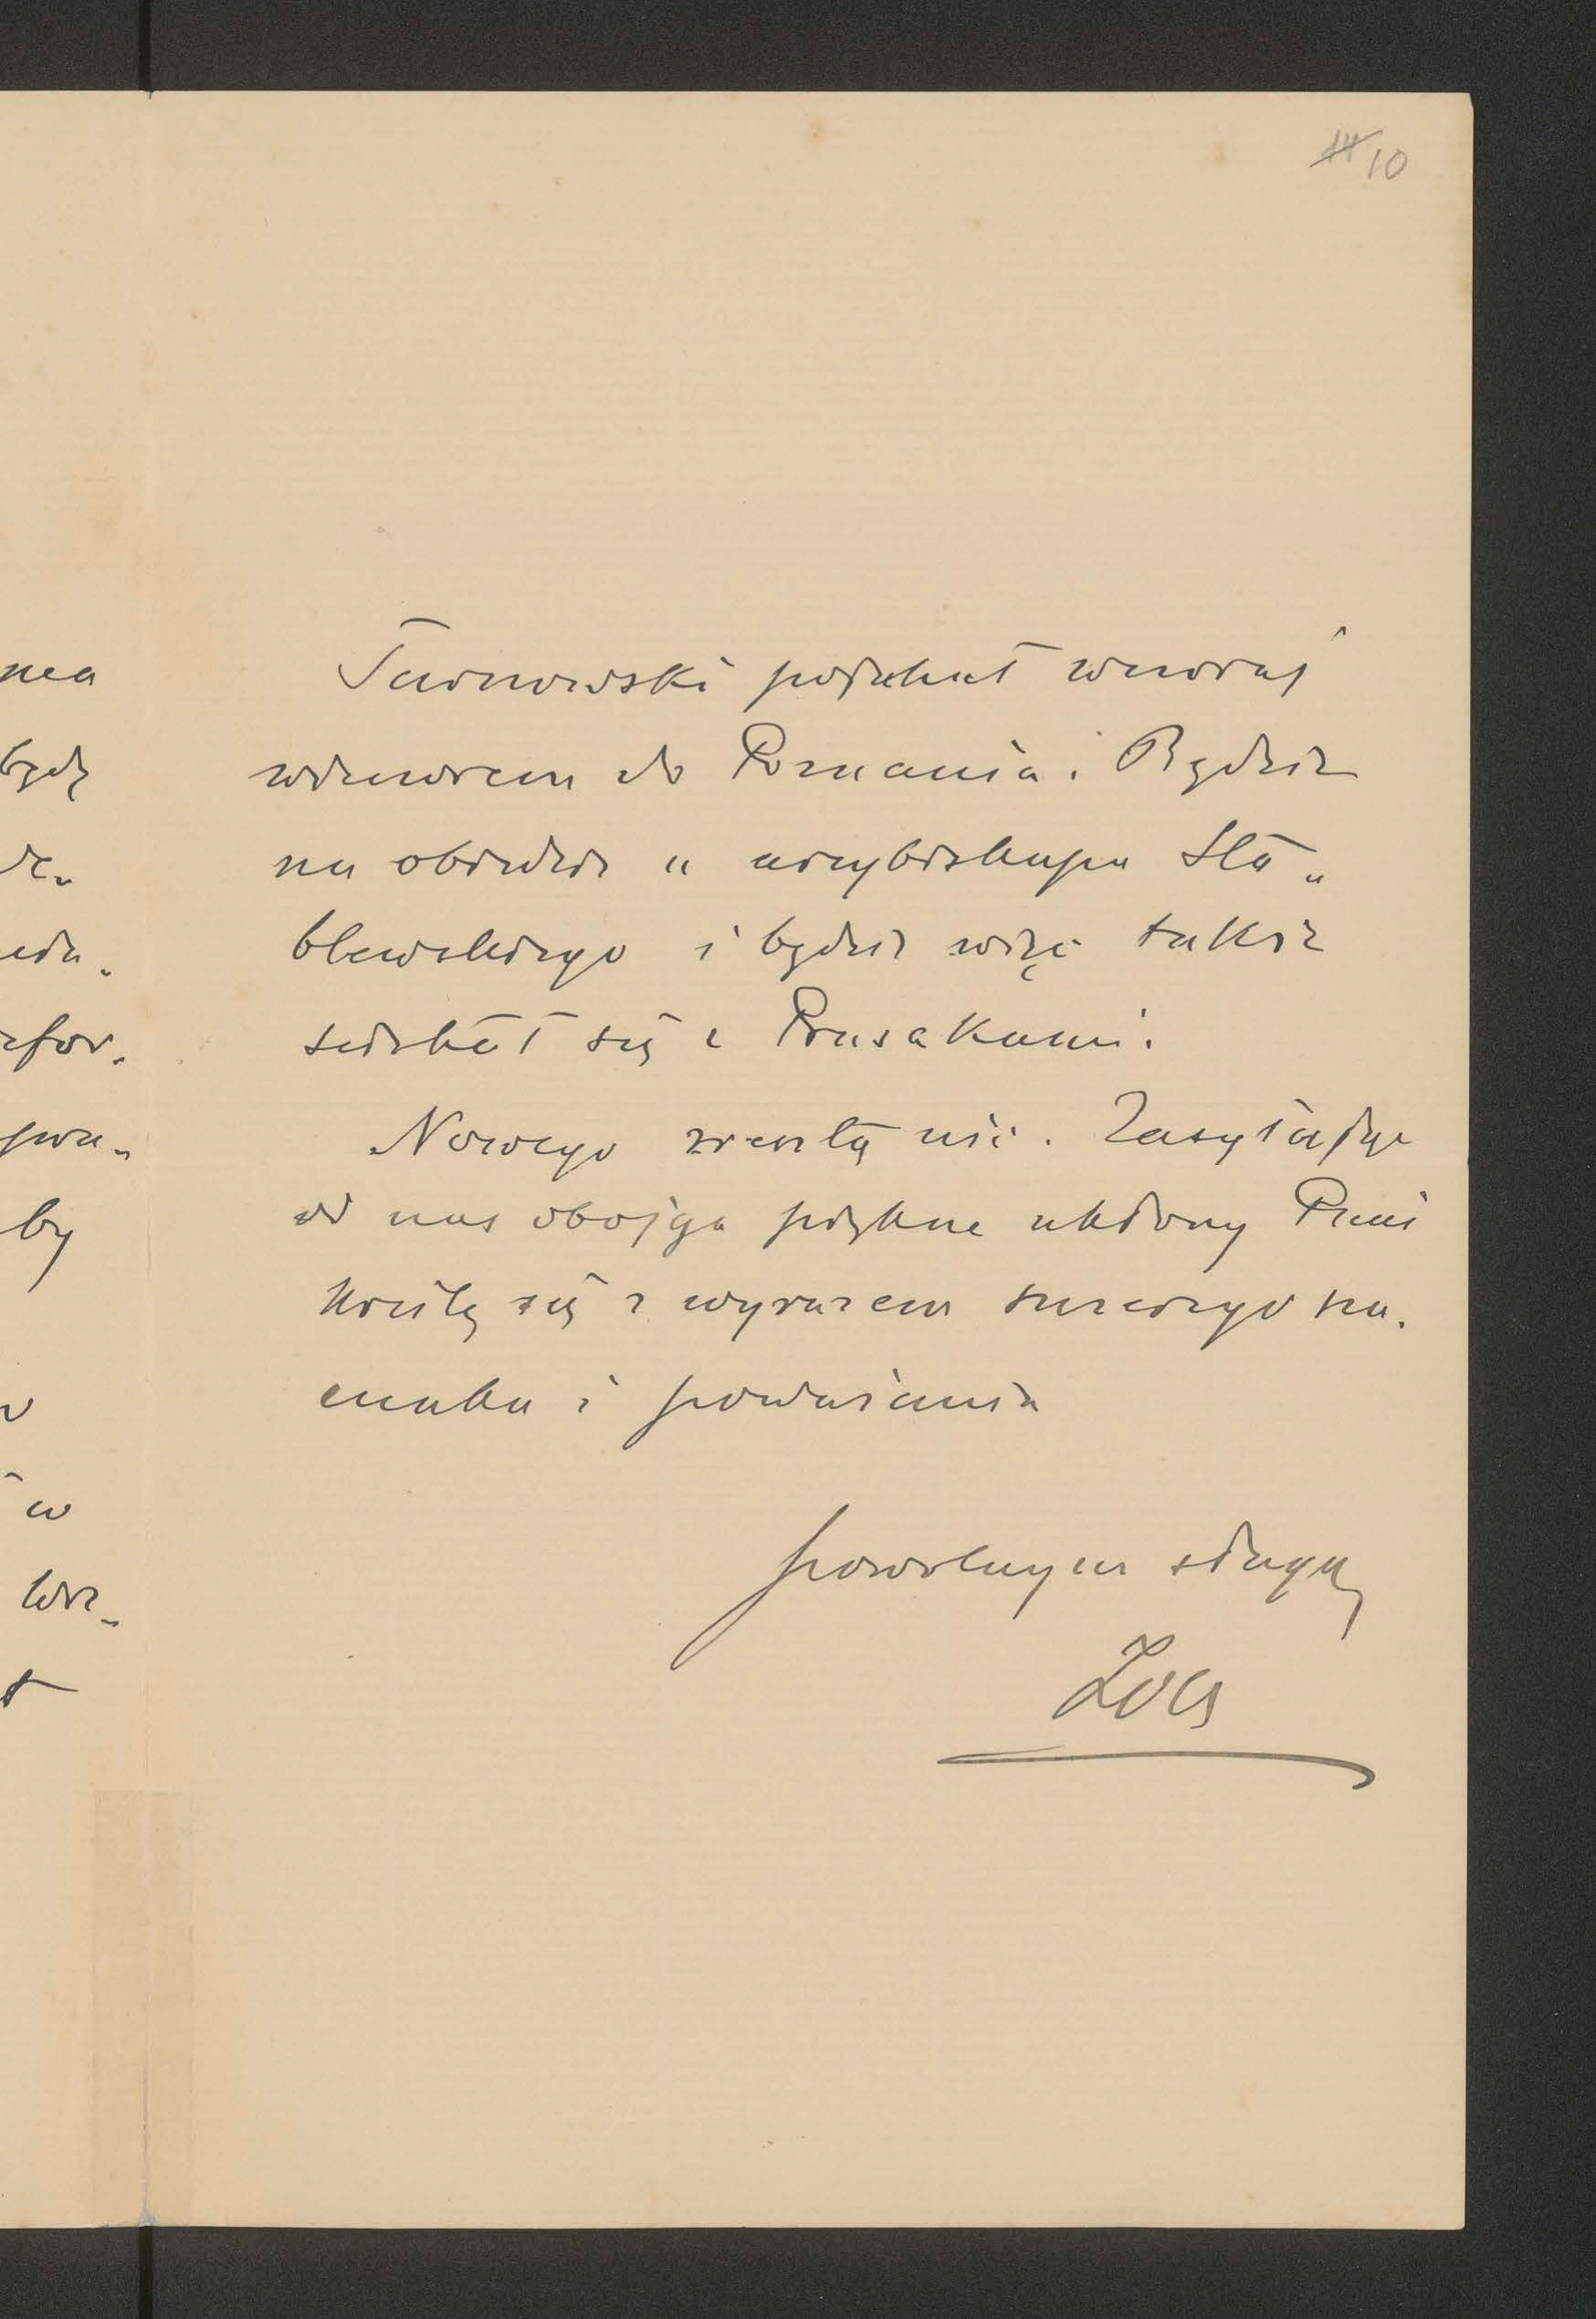 14 10
Tarnowski pojechał wczoraj
wieczorem do Poznania. Będzie
na obiedzie u arcybiskupa Sta„
blewskiego i będzie więc także
się z Prusakami.
Nowego zresztą nic. Zasyłając
od nas obojga piękne ukłony Pani
kreślę się z wyrazem szczerego sza.
cunku i poważania
powolnym sługą
nea
będę
by
w